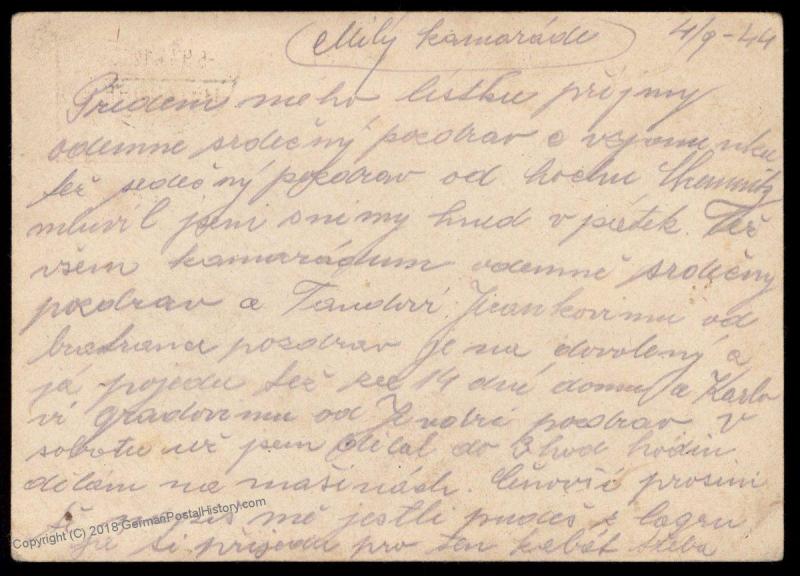 Milý kamaráde 4/9-44
Předem mého lístku příjmy
odemne srdečný pozdrav a vzpomínku
též sedečný pozdrav od hochu Chemnitz
mluvil jsem snimy hned v pátek. Též
všem kamarádum odemně srdečny
pozdrav a Tondovi od
bratrance pozdrav je na dovolený a
já pojedu též za 14 dní domu a Karlo
vi od Jendri pozdrav v
sobotu už jsem dělal do 3 hod hodin
dělám na mašinách. prosim
tě napis mě jestli pudeš z lagru
že si přijedu pro ten kabát třeba
Copyright (C) 2018 GermanPostalHistory.com